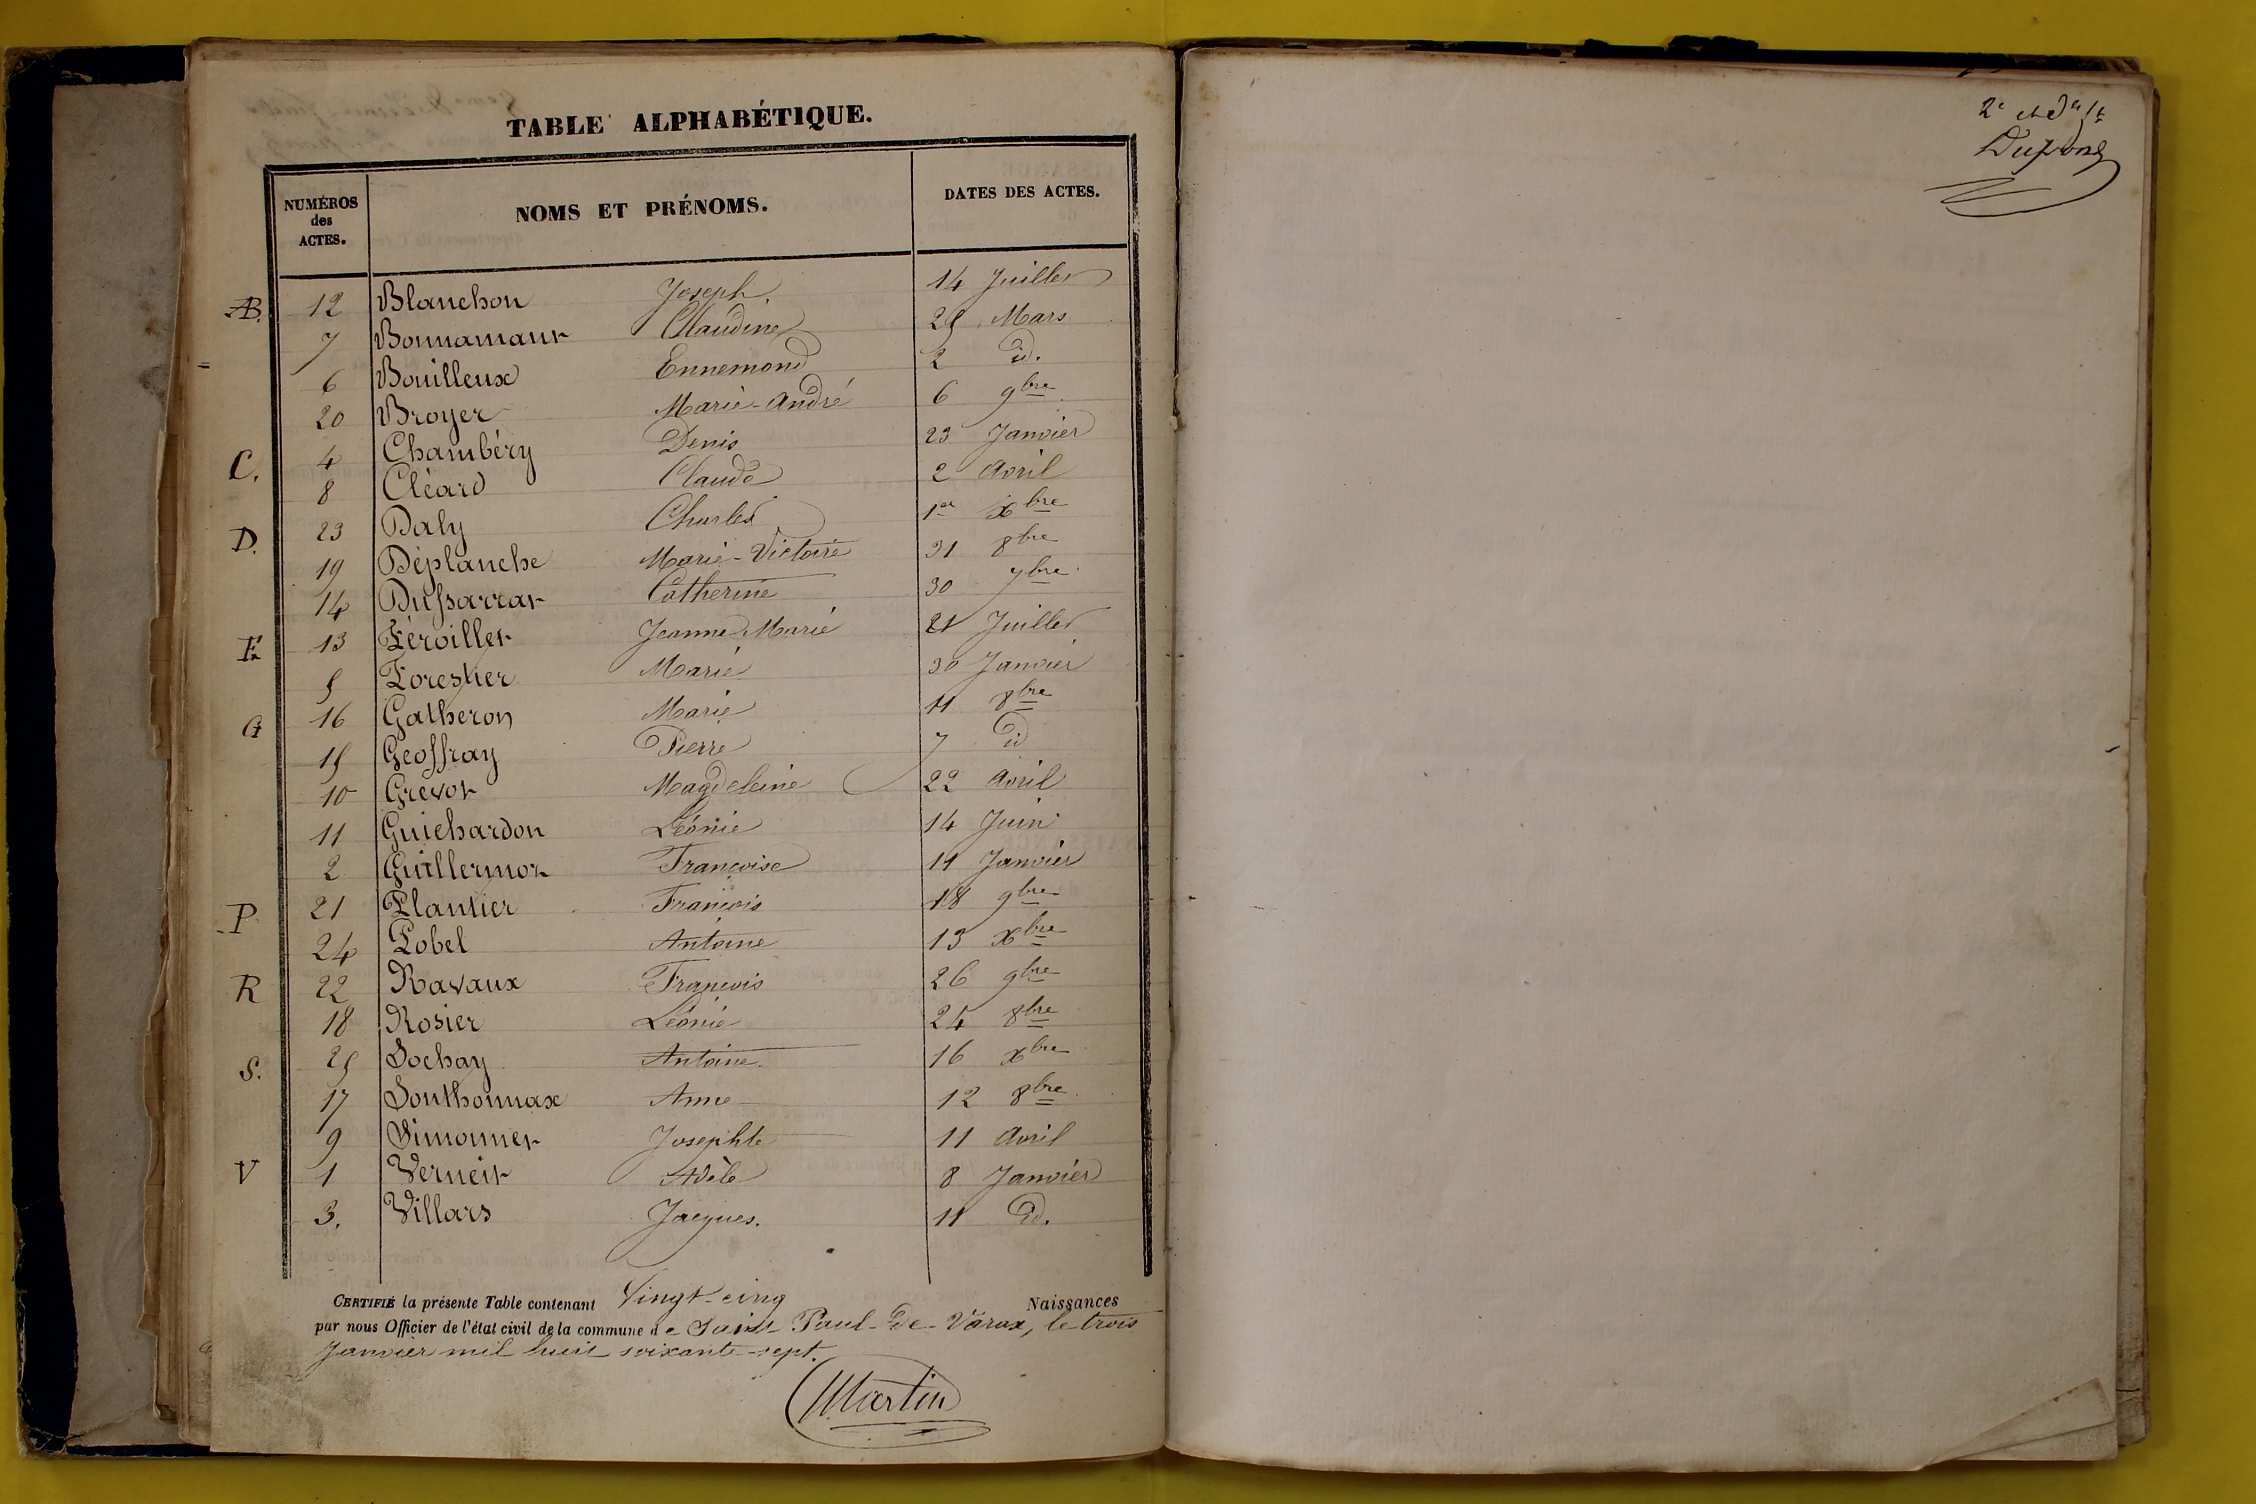 TABLE ALPHABÉTIQUE.
NUMÉROS des ACTES. NOMS ET PRÉNOMS. DATES DES ACTES.
B. 12 Blanchon Joseph. 14 Juillet
7 Bonnamant Claudine 25 Mars
6 Bouilleux Ennemond 2 id.
20 Broyer Marie-André 6 9bre
C. 4 Chambéry Denis 23 Janvier
8 Cléard Claude 2 Avril
D. 23 Daly Charles 1er Xbre
19 Déplanche Marie-Victoire 31 8bre
14 Dussarrat Catherine 30 7bre
F. 13 Féroillet Jeanne Marie 21 Juillet
5 Forestier Marie 30 Janvier
G 16 Gatheron Marie 11 8bre
15 Geoffray Pierre 7 id
10 Grévot Magdeleine 22 Avril
11 Guichardon Léonie 14 Juin
2 Guillermot Françoise 11 Janvier
P 21 Plantier François 18 9bre
24 Pobel Antoine 13 Xbre
R 22 Ravaux François 26 9bre
18 Rosier Léonie 24 8bre
S. 25 Sochay Antoine. 16 Xbre
17 Sonthonnax Anne 12 8bre
9 Simonnet Josephte 11 Avril
V 1 Verneit Adèle 8 Janvier
3. Villars Jacques. 11 id.
CERTIFIÉ la présente Table contenant Vingt-cinq Naissances
par nous Officier de l'état civil de la commune de Saint-Paul-de-Varax, le trois
Janvier mil huit soixante-sept.
Martin
2e et der
Dupond